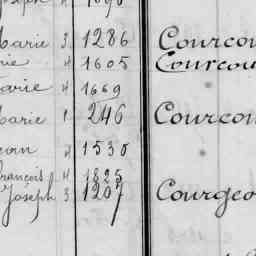 Joseph 4 1698
Marie 3 1286 Courcou
rie 4 1605 Courcou
Marie 4 1669
Marie 1 246 Courcou
4 1530
François 4 1825
Joseph 3 1207 Courgeo